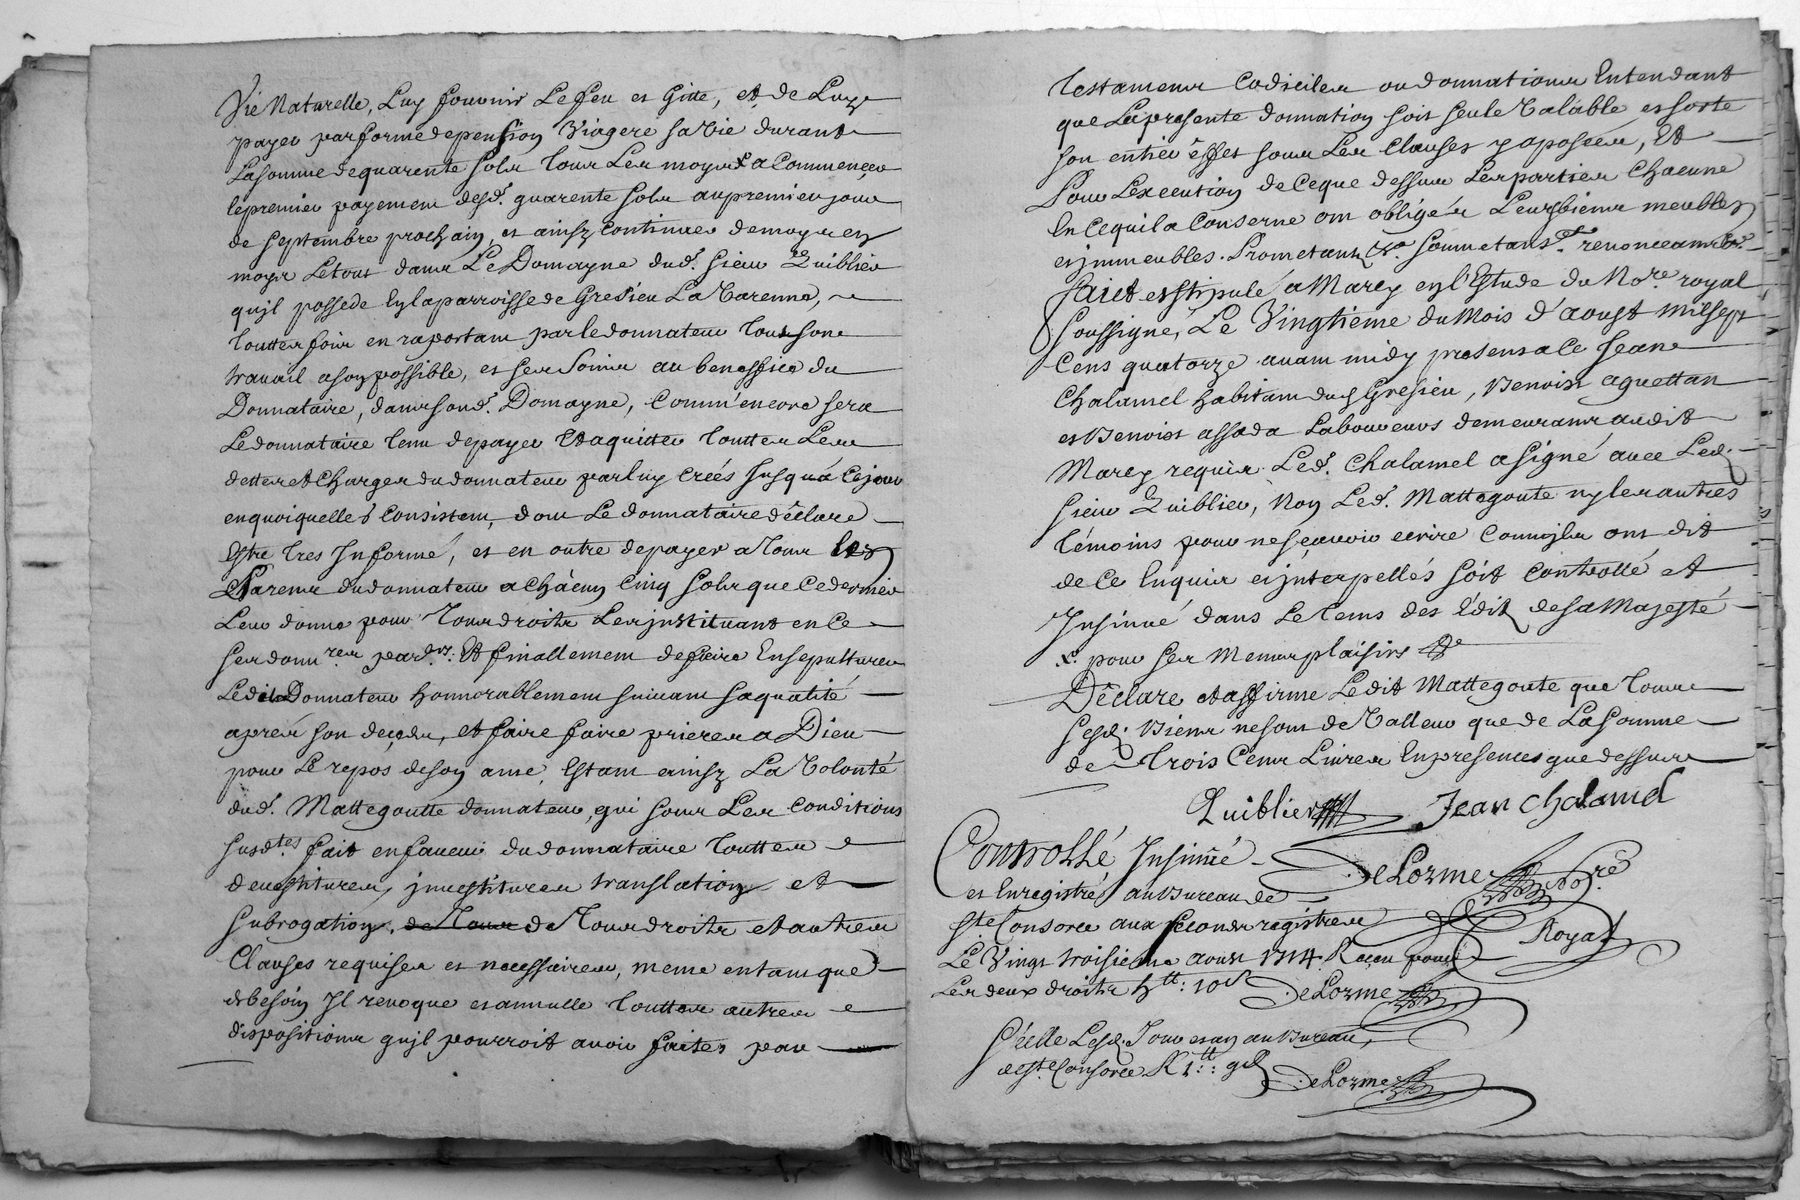 Vie Naturelle, Luy fournir Le feu et Gitte, et de Luy
payer par forme de pension Viagere sa Vie durant
La somme de quarente sols tous Les moys x a Commencer
le premier payement desd. quarente sols au premier jour
de septembre prochain, et ainsy continuer de moys en
moys Le tout dans Le Domayne dud. sieur Quiblier
qu'jl possede En la parroisse de Gresieu La Varenne,
touttes fois en raportant par le donnateur tout son
travail a son possible, et ses Soins au beneffice du
Donnataire, dans sond. Domayne, Comm'encore sera
Le donnataire tenu de payer Et aquitter touttes Les
dettes et Charges du donnateur par luy creés Jusqu'á Ce jour
en quoi quelles Consistent, dont Le donnataire déclare
Estre tres Jnformé, et en outre de payer a tous les
Parents du donnateur a Chácun Cinq sols que Ce dernier
Leur donne pour tous droits Les jnstituant en Ce
ses donn.res par.ers: Et finallement de faire Ensepulturer
Ledit Donnateur honnorablement suivant sa qualité
aprés son deçeds, et faire faire prieres a Dieu
pour Le repos de son ame, Estant ainsy La Volonté
dud. Mattegoutte donnateur, qui sous Les Conditions
susd.tes fait en faveur du donnataire touttes
devestitures, jnvestitures translation et
subrogation, de tous de Tous droits et autres
Clauses requises et necessaires, meme en tant que
de besoin Jl revoque et annulle touttes autres
dispositions qu'jl pourroit avoir faites par
testament Codiciles ou donnations Entendant
que La presente donnation soit seule Valáble et sorte
son entier éffet sous Les Clauses y aposées, Et
Pour L'execution de Ce que dessus Les parties Chacune
En Ce qui la Conserne ont obligés Leurs biens meubles
et jmmeubles. Promettant &a. soumetans &a. renonceant &a.
Fait et stipulé a Marcy en l'Estude du No.re royal
soussigné, Le Vingtieme du Mois d'aoust milsept
Cens quatorze avant midy presens a Ce Jean
Chalamel habitant dud Gresieu, Benoist aguettan
et Benoist assada Laboureurs demeurants audit
Marcy requis Led. Chalamel a signé avec Led.
sieur Quiblier, Non Led. Mattegoute ny les autres
témoins pour ne sçavoir ecrire Comm'jls ont dit
de Ce Enquis et jnterpellés soit Controllé et
Jnsinué dans Le tems des Edits de sa Majesté
x. pour ses Menus plaisirs &
Déclare et affirme Ledit Mattegoute que tous
sesd. Biens ne sont de Valleur que de La somme
de Trois Cens Livres En presences que dessus
Quiblier Jean Chalamel
DeLorme No.re
Royal
Controllé, Jnsinué
et Enregistré au Bureau de
S.te Consorce aux seconds registres
Le Vingt troisieme aoust 1714. Receu pour
Les deux droits 4tt: 10s DeLorme
Séellé Lesd. Jour et an au Bureau,
de S.te Consorce R 1tt:: 9d
DeLorme